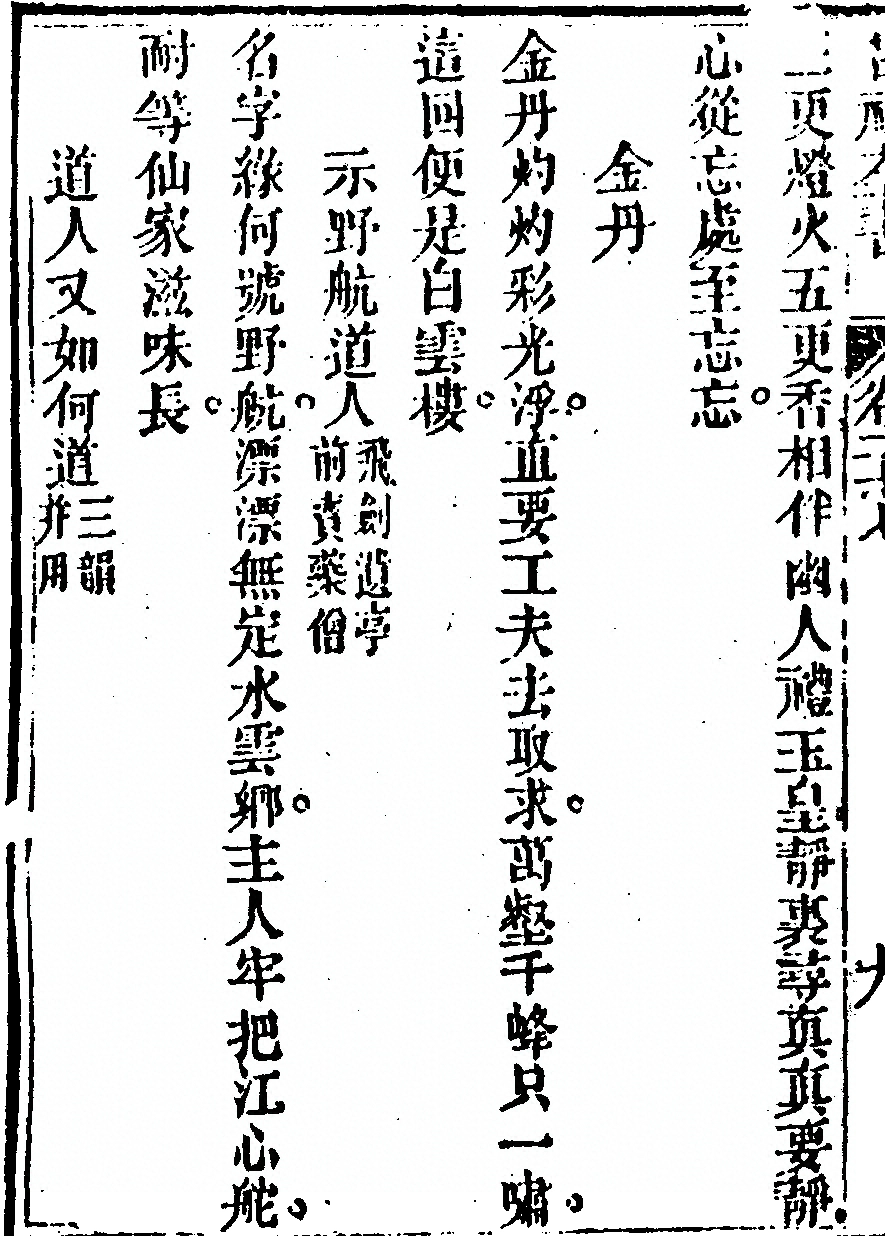 卷二十七
九
三更燈火五更香相伴幽人禮玉皇靜裏尋真真要靜
心從忘處至忘忘
金丹
金丹灼灼彩光浮直要工夫去取求萬壑千蜂只一嘯
這回便是白雲樓
示野航道人飛劍道亭前賣藥僧
名字緣何號野航漂漂無定水雲鄉主人牢把江心舵
耐等仙家滋味長
道人又如何道三韻并用